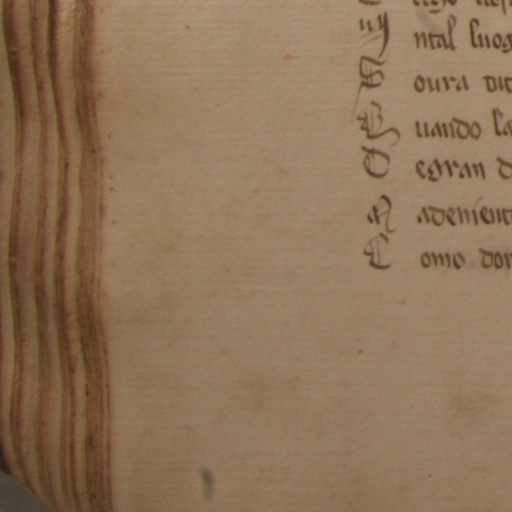 I ntal luog
N oura dit
Q uando la
D egran d
N adenient
C omo dor